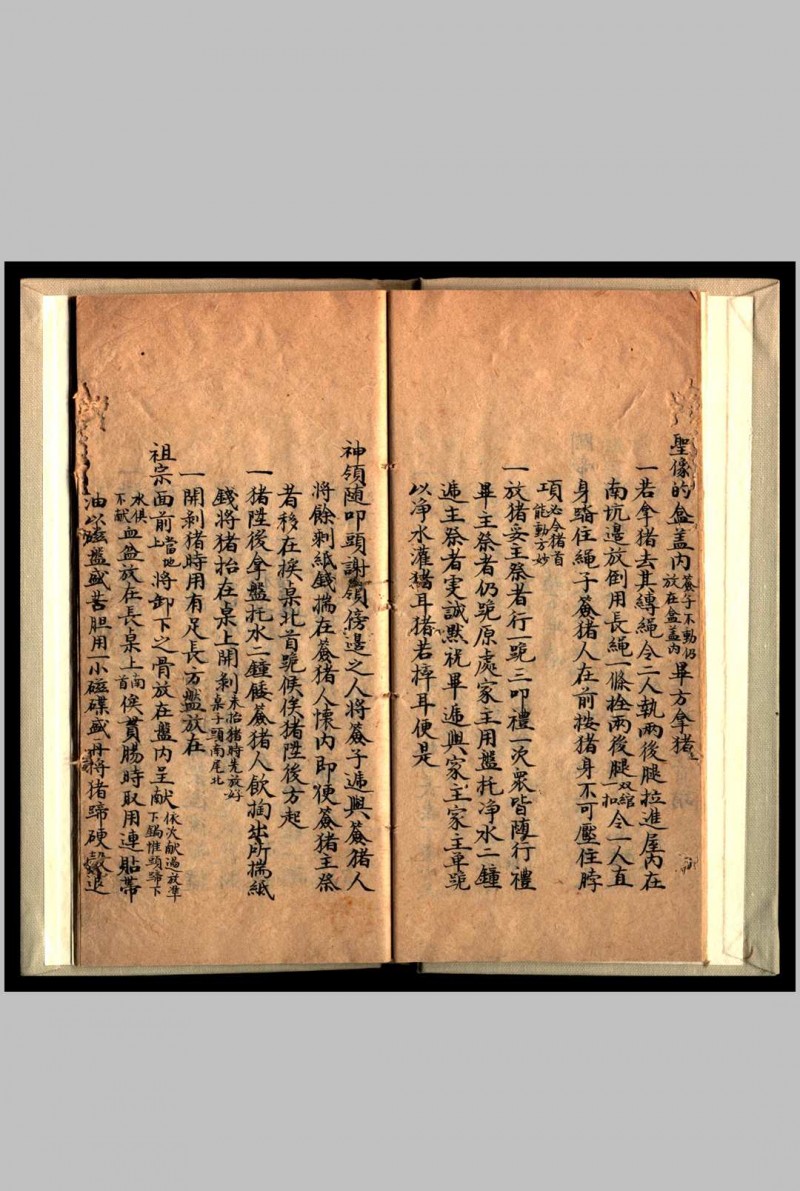 聖像的盆盖内簽子不動仍放在盆盖内畢方拿猪
一若拿猪去其縛繩令二人執两後腿拉進屋内在
南坑邊放倒用長繩一條拴两後腿双綰一扣令一人直
身踏住繩子簽猪人在前按猪身不可壓住脖
項必令猪首能動方妙
一放猪妥主祭者行一跪三叩禮一次衆皆随行禮
畢主祭者仍跪原處家主用盤托净水二鍾
遞主祭者虔誠黙祝畢遞與家主家主单跪
以净水灌猪耳猪若捽耳便是
神領随叩頭謝領傍邊之人將簽子遞與簽猪人
將餘剩紙錢揣在簽猪人懷内即便簽猪主祭
者移在挨桌北首跪候俟猪陞後方起
一猪陞後拿盤托水二鍾倭簽猪人飲掏出所揣紙
錢將猪抬在桌上開剝未抬猪時先放好桌子頭南尾北
一開剝猪時用有足長方盤放在
祖宗面前當地上將卸下之骨放在盤内呈献依次献過放準下鍋惟頭蹄下
水俱不献血盆放在長桌上南首俟貫腸時取用連貼帶
油以磁盤盛苦胆用一小磁碟盛再將猪蹄硬殼退